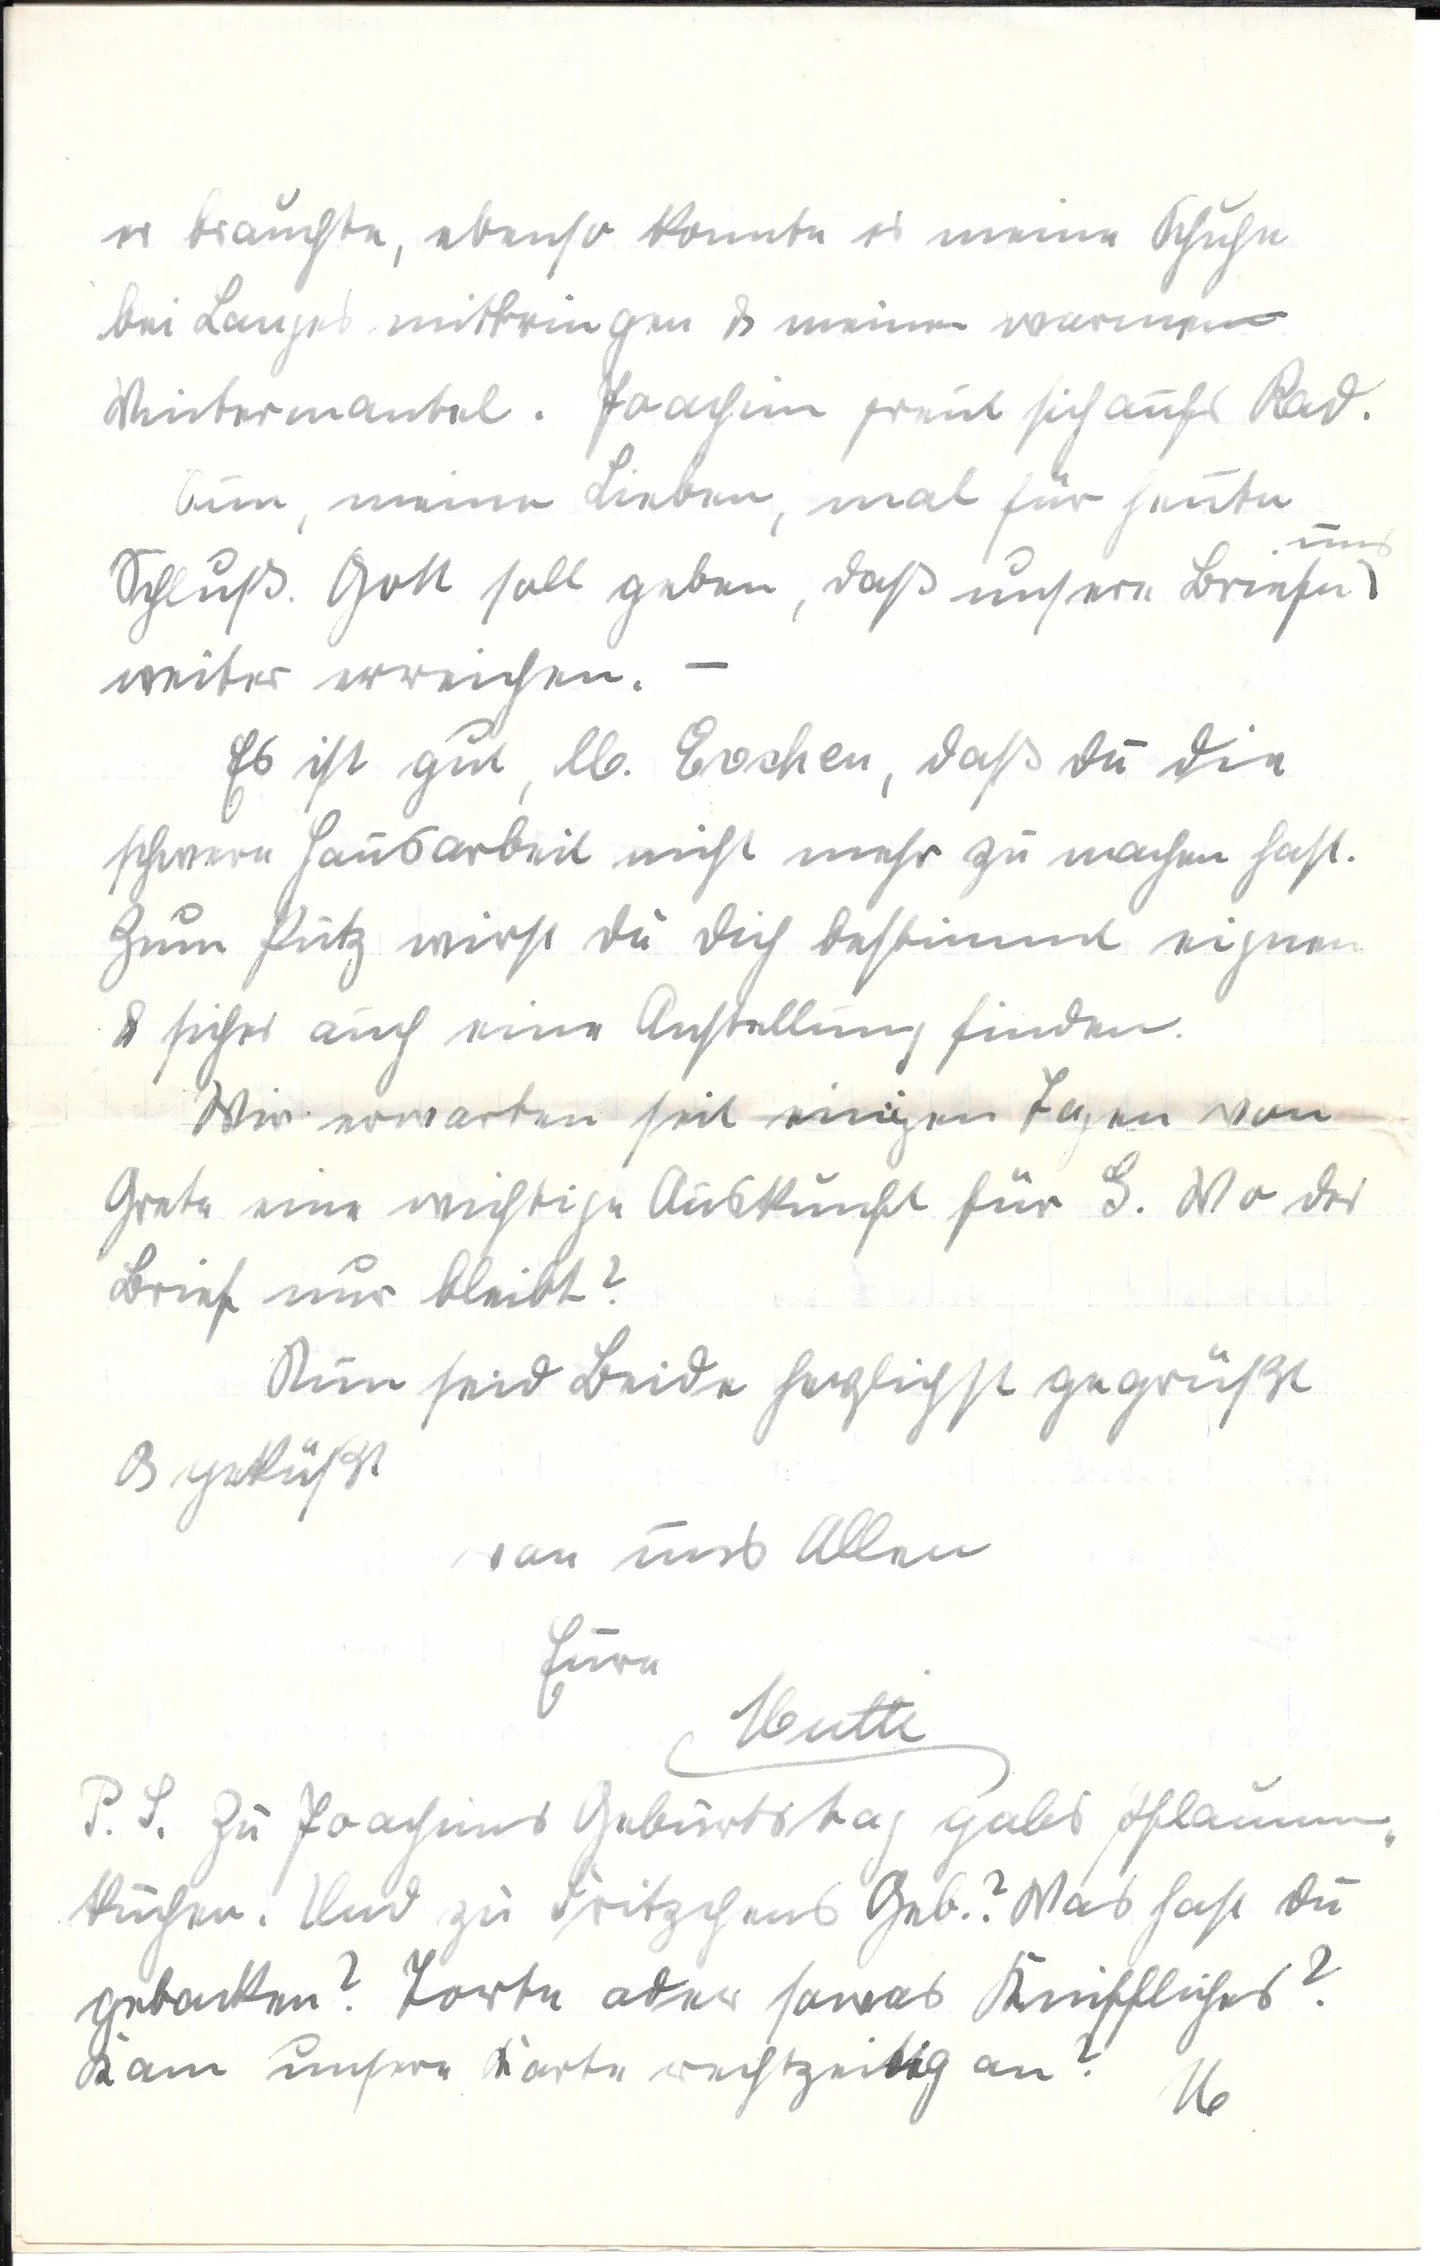 er brauchte, ebenso konnte er meine Schuhe
bei Langes mitbringen & meinen warmen
Wintermantel. Joachim freut sich aufs Rad.
Nun, meine Lieben, mal für heute
Schluß. Gott soll geben, daß unsere Briefe uns
weiter erreichen. –
Es ist gut, lb. Evchen, daß du die
schwere Hausarbeit nicht mehr zu machen hast.
Zum Putz wirst du dich bestimmt eignen
& sicher auch eine Anstellung finden.
Wir erwarten seit einigen Tagen von
Grete eine wichtige Auskunft für G. Wo der
Brief nur bleibt?
Nun seid Beide herzlichst gegrüßt
& geküßt
von uns Allen
Eure
Mutti
P. S. Zu Joachims Geburtstag gabs Pflaumen-
kuchen. Und zu Fritzchens Geb.? Was hast du
gebacken? Torte oder sowas Kniffliches?
Kam unsere Karte rechtzeitig an? M